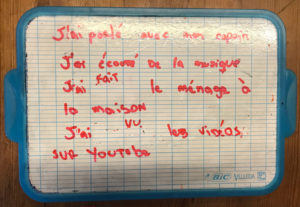 J'ai parlé avec mon copain
J'ai écouté de la musique
J'ai fait le ménage à
la maison
J'ai vu les vidéos
sur Youtube
BIC Velleda